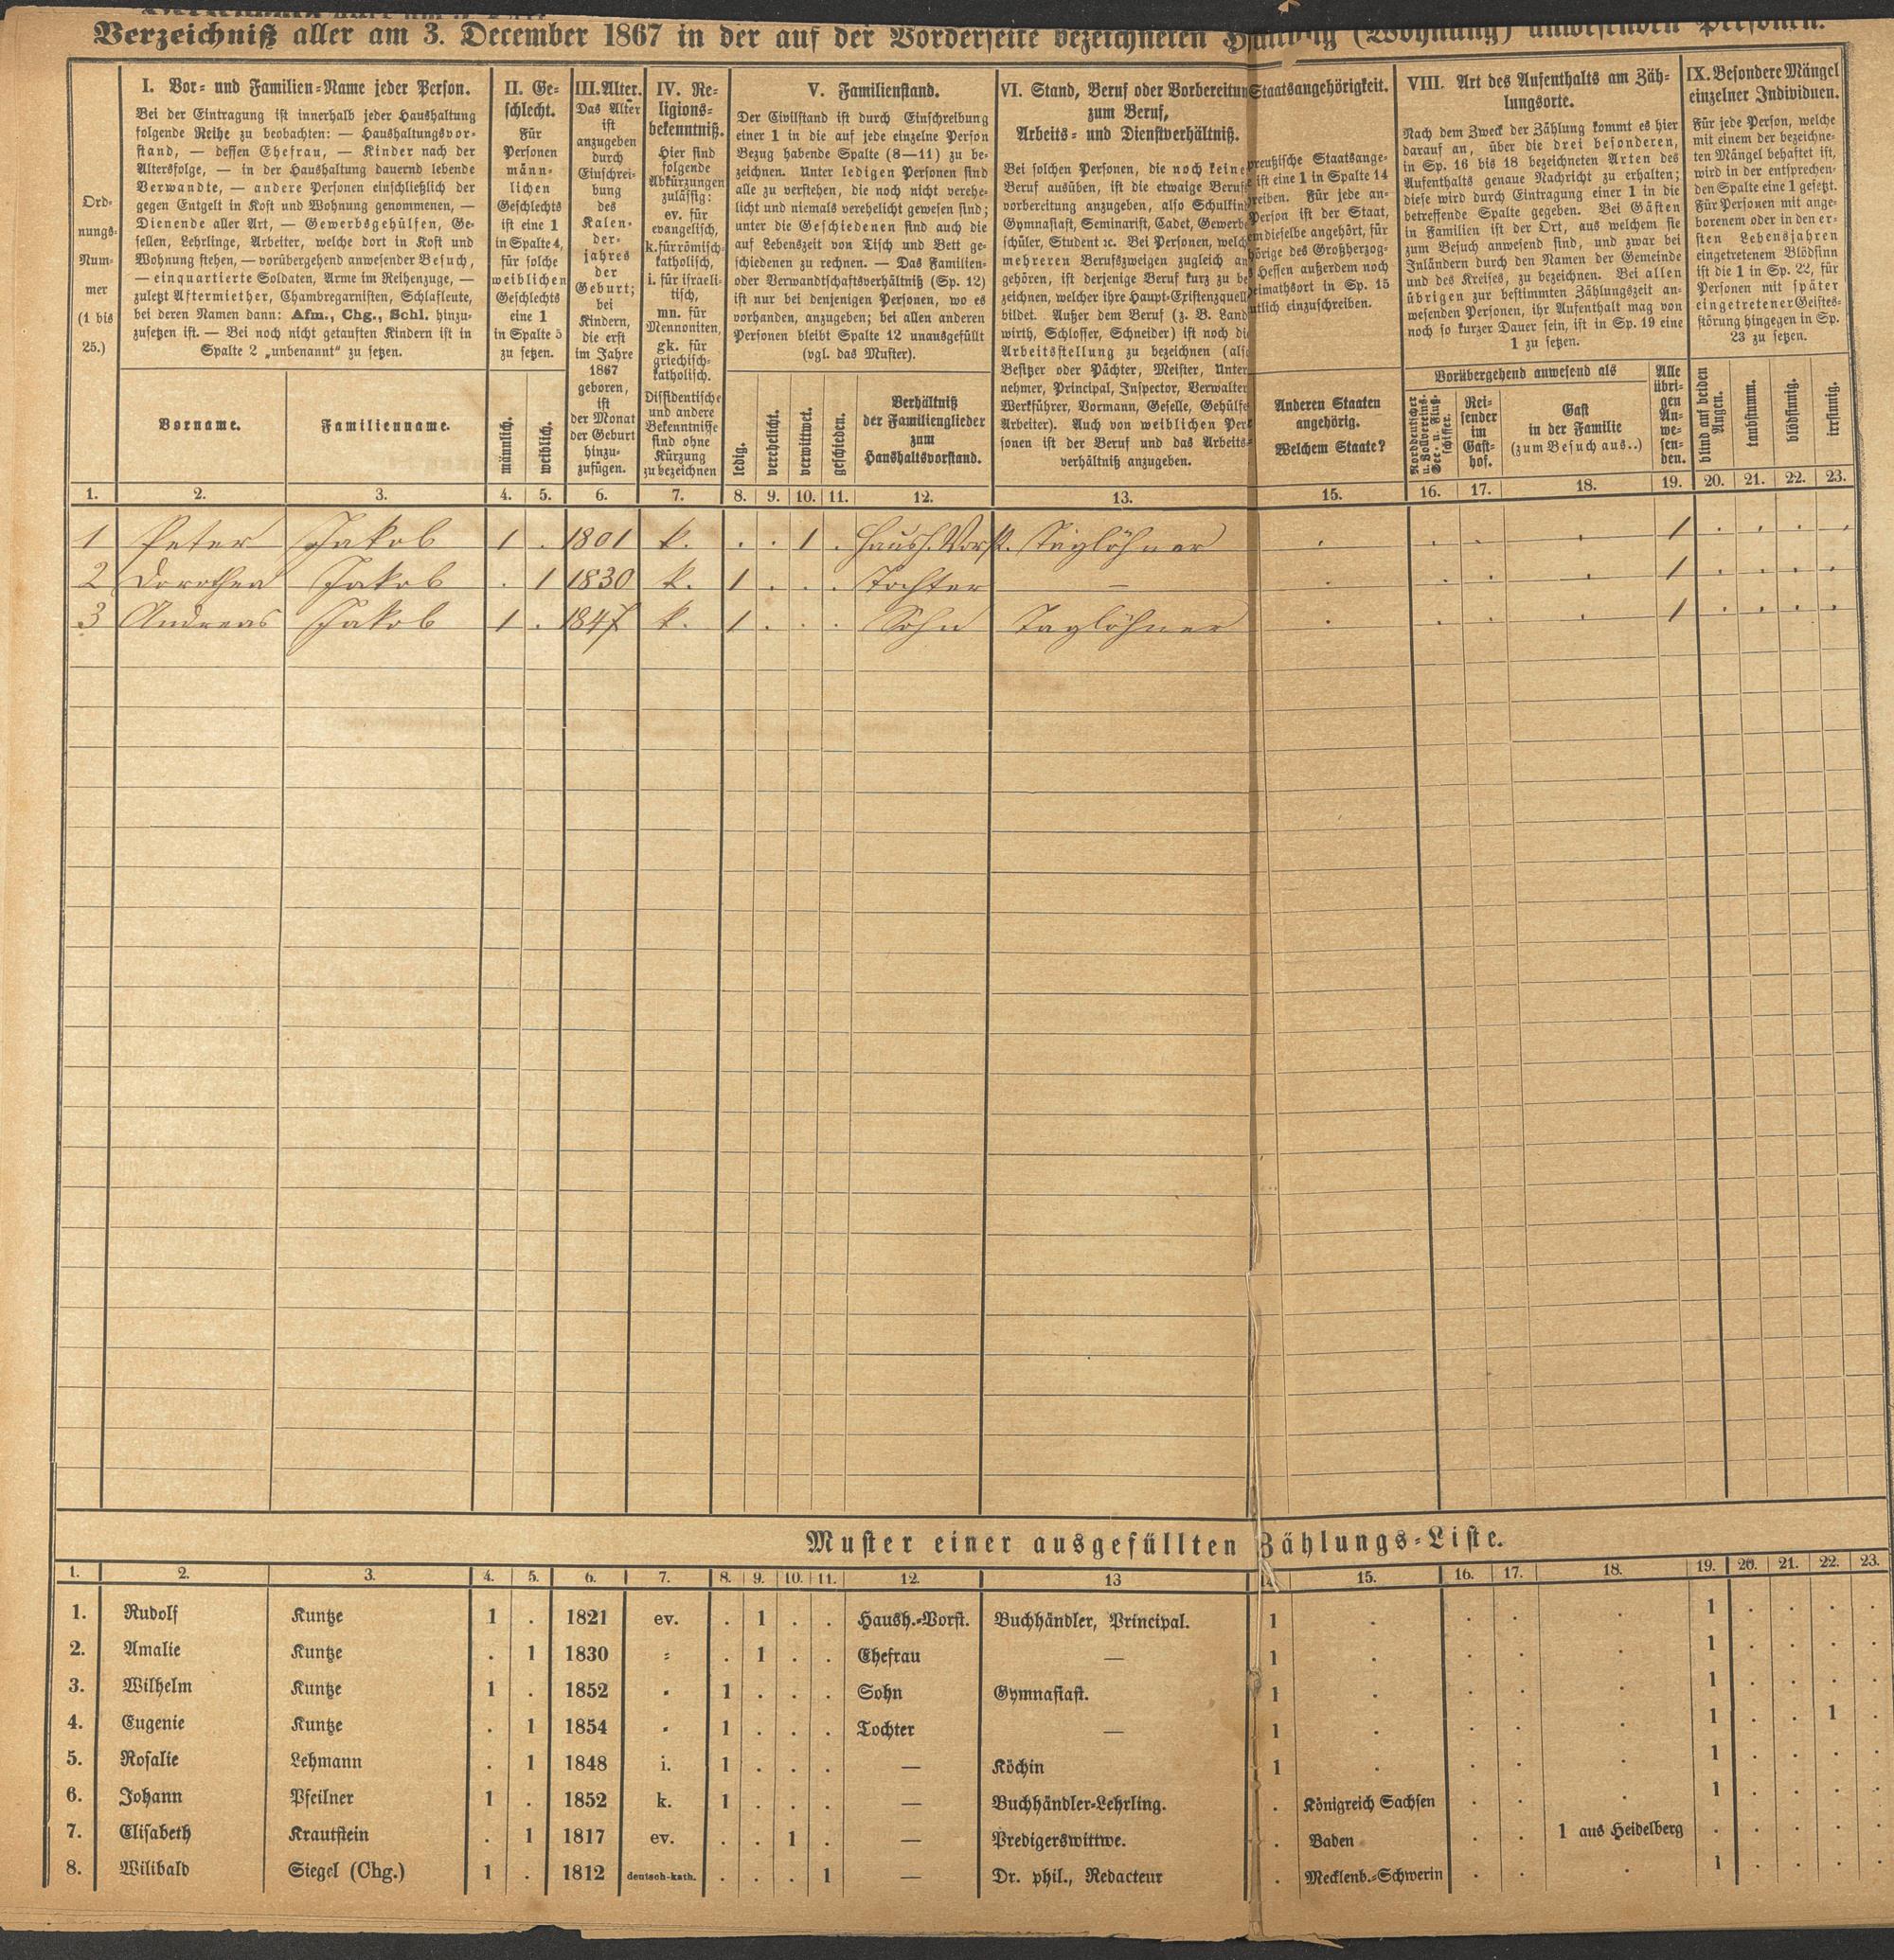 Verzeichniß aller am 3. December 1867 in der auf der Vorderseite bezeichneten (Wohnung) anwesenden Personen.
Ord-
nungs-
Num-
mer
(1 bis
25.)
I. Vor- und Familien-Name jeder Person.
Bei der Eintragung ist innerhalb jeder Haushaltung
folgende Reihe zu beobachten: — Haushaltungsvor-
stand, — dessen Ehefrau, — Kinder nach der
Altersfolge, — in der Haushaltung dauernd lebende
Verwandte, — andere Personen einschließlich der
gegen Entgelt in Kost und Wohnung genommenen, —
Dienende aller Art, — Gewerbsgehülfen, Ge-
sellen, Lehrlinge, Arbeiter, welche dort in Kost und
Wohnung stehen, — vorübergehend anwesender Besuch,
— einquartierte Soldaten, Arme im Reihenzuge, —
zuletzt Aftermiether, Chambregarnisten, Schlafleute,
bei deren Namen dann: Afm., Chg., Schl. hinzu-
zusetzen ist. — Bei noch nicht getauften Kindern ist in
Spalte 2 „unbenannt“ zu setzen.
Vorname.
Familienname.
II. Ge-
schlecht.
Für
Personen
männ-
lichen
Geschlechts
ist eine 1
in Spalte 4,
für solche
weiblichen
Geschlechts
eine 1
in Spalte 5
zu setzen.
männlich.
weiblich.
III. Alter.
Das Alter
ist
anzugeben
durch
Einschrei-
bung
des
Kalen-
der-
jahres
der
Geburt;
bei
Kindern,
die erst
im Jahre
1867
geboren,
ist
der Monat
der Geburt
hinzu-
zufügen.
IV. Re-
ligions-
bekenntniß.
Hier sind
folgende
Abkürzungen
zulässig:
ev. für
evangelisch,
k. für römisch-
katholisch,
i. für israeli-
tisch,
mn. für
Mennoniten,
gk. für
griechisch-
katholisch.
Dissidentische
und andere
Bekenntnisse
sind ohne
Kürzung
zu bezeichnen
V. Familienstand.
Der Civilstand ist durch Einschreibung
einer 1 in die auf jede einzelne Person
Bezug habende Spalte (8—11) zu be-
zeichnen. Unter ledigen Personen sind
alle zu verstehen, die noch nicht verehe-
licht und niemals verehelicht gewesen sind;
unter die Geschiedenen sind auch die
auf Lebenszeit von Tisch und Bett ge-
schiedenen zu rechnen. — Das Familien-
oder Verwandtschaftsverhältniß (Sp. 12)
ist nur bei denjenigen Personen, wo es
vorhanden, anzugeben; bei allen anderen
Personen bleibt Spalte 12 unausgefüllt
(vgl. das Muster).
ledig.
verehelicht.
verwittwet.
geschieden.
Verhältniß
der Familienglieder
zum
Haushaltsvorstand.
VI. Stand, Beruf oder Vorbereitun
zum Beruf,
Arbeits- und Dienstverhältniß.
Bei solchen Personen, die noch keine
Beruf ausüben, ist die etwaige Berufs
vorbereitung anzugeben, also Schulkind
Gymnasiast, Seminarist, Cadet, Gewerbe
schüler, Student ꝛc. Bei Personen, welch
mehreren Berufszweigen zugleich an
gehören, ist derjenige Beruf kurz zu be
zeichnen, welcher ihre Haupt-Existenzquell
bildet. Außer dem Beruf (z. B. Land
wirth, Schlosser, Schneider) ist noch die
Arbeitsstellung zu bezeichnen (also
Besitzer oder Pächter, Meister, Unter
nehmer, Principal, Inspector, Verwalter
Werkführer, Vormann, Geselle, Gehülfe
Arbeiter). Auch von weiblichen Per
sonen ist der Beruf und das Arbeits-
verhältniß anzugeben.
Staatsangehörigkeit.
preußische Staatsange-
ist eine 1 in Spalte 14
reiben. Für jede an-
Person ist der Staat,
em dieselbe angehört, für
hörige des Großherzog-
s Hessen außerdem noch
eimathsort in Sp. 15
utlich einzuschreiben.
Anderen Staaten
angehörig.
Welchem Staate?
VIII. Art des Aufenthalts am Zäh-
lungsorte.
Nach dem Zweck der Zählung kommt es hier
darauf an, über die drei besonderen,
in Sp. 16 bis 18 bezeichneten Arten des
Aufenthalts genaue Nachricht zu erhalten;
diese wird durch Eintragung einer 1 in die
betreffende Spalte gegeben. Bei Gästen
in Familien ist der Ort, aus welchem sie
zum Besuch anwesend sind, und zwar bei
Inländern durch den Namen der Gemeinde
und des Kreises, zu bezeichnen. Bei allen
übrigen zur bestimmten Zählungszeit an-
wesenden Personen, ihr Aufenthalt mag von
noch so kurzer Dauer sein, ist in Sp. 19 eine
1 zu setzen.
Vorübergehend anwesend als
Norddeutscher
u. Zollvereins-
See- u. Fluß-
schiffer.
Rei-
sender
im
Gast-
hof.
Gast
in der Familie
(zum Besuch aus..)
Alle
übri-
gen
An-
we-
sen-
den.
IX. Besondere Mängel
einzelner Individuen.
Für jede Person, welche
mit einem der bezeichne-
ten Mängel behaftet ist,
wird in der entsprechen-
den Spalte eine 1 gesetzt.
Für Personen mit ange-
borenem oder in den er-
sten Lebensjahren
eingetretenem Blödsinn
ist die 1 in Sp. 22, für
Personen mit später
eingetretener Geistes-
störung hingegen in Sp.
23 zu setzen.
blind auf beiden
Augen.
taubstumm.
blödsinnig.
irrsinnig.
1. 2. 3. 4. 5. 6. 7. 8. 9. 10. 11. 12. 13. 15. 16. 17. 18. 19. 20. 21. 22. 23.
1 Peter Jakob 1 . 1801 k. . . 1 . Haush. Vorst. Taglöhner . . . . 1 . . . .
2 Dorothea Jakob . 1 1830 k. 1 . . . Tochter — . . . . 1 . . . .
3 Andreas Jakob 1 . 1847 k. 1 . . . Sohn Taglöhner . . . . 1 . . . .
Muster einer ausgefüllten Zählungs-Liste.
1. 2. 3. 4. 5. 6. 7. 8. 9. 10. 11. 12. 13 14. 15. 16. 17. 18. 19. 20. 21. 22. 23.
1. Rudolf Kuntze 1 . 1821 ev. . 1 . . Haush.-Vorst. Buchhändler, Principal. 1 . . . . 1 . . . .
2. Amalie Kuntze . 1 1830 " . 1 . . Ehefrau — 1 . . . . 1 . . . .
3. Wilhelm Kuntze 1 . 1852 " 1 . . . Sohn Gymnasiast. 1 . . . . 1 . . . .
4. Eugenie Kuntze . 1 1854 " 1 . . . Tochter — 1 . . . . 1 . . 1 .
5. Rosalie Lehmann . 1 1848 i. 1 . . . — Köchin 1 . . . . 1 . . . .
6. Johann Pfeilner 1 . 1852 k. 1 . . . — Buchhändler-Lehrling. . Königreich Sachsen . . . 1 . . . .
7. Elisabeth Krautstein . 1 1817 ev. . . 1 . — Predigerswittwe. . Baden . . 1 aus Heidelberg . . . . .
8. Wilibald Siegel (Chg.) 1 . 1812 deutsch-kath. . . . 1 — Dr. phil., Redacteur . Mecklenb.-Schwerin . . . 1 . . . .